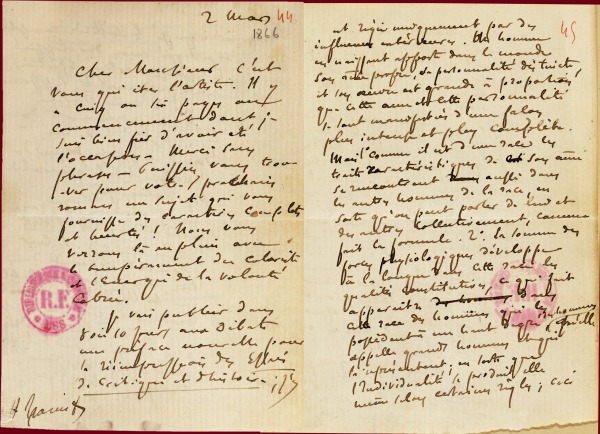 2 Mars 44
1866
Cher Monsieur c'est
vous qui êtes l'artiste. Il y
a cinq ou six pages au
commencement dont je
suis bien fier d'avoir été
l'occasion — Merci sans
phrases — Puissiez vous trou
-ver pour votre prochain
roman un sujet qui vous
fournisse des caractères complets
et heurtés! Nous vous
verrons là en plein avec
le tempérament du coloriste
et l'énergie de la volonté
Je vais publier dans
8 ou 10 jours aux Débats
une préface nouvelle pour
la réimpression des Essais
de Critique et d'histoire
R.F.
MSS
45
et régie uniquement par des
influences extérieures. Un homme
en naissant apporte dans le monde
son âme propre, sa personnalité distincte
et son œuvre est grande à proportion
que cette âme et cette personnalité
se sont manifestées d'une façon
plus intense et plus complète.
Mais comme il est d'une race les
traits caractéristiques de son âme
se rencontrent aussi dans
les autres hommes de la race, en
sorte qu'on peut parler de lui et
des autres collectivement, comme
fait la formule. 2° la somme des
forces physiologiques développe
à la longue dans cette race les
qualités constitutives, ce qui fait
apparaître dans
cette race des hommes qui les
possèdent à un haut degré, des hommes
appelle grands hommes et qui
la représentent; en sorte que
l'Individualité se produit elle
même selon certaines règles; ceci